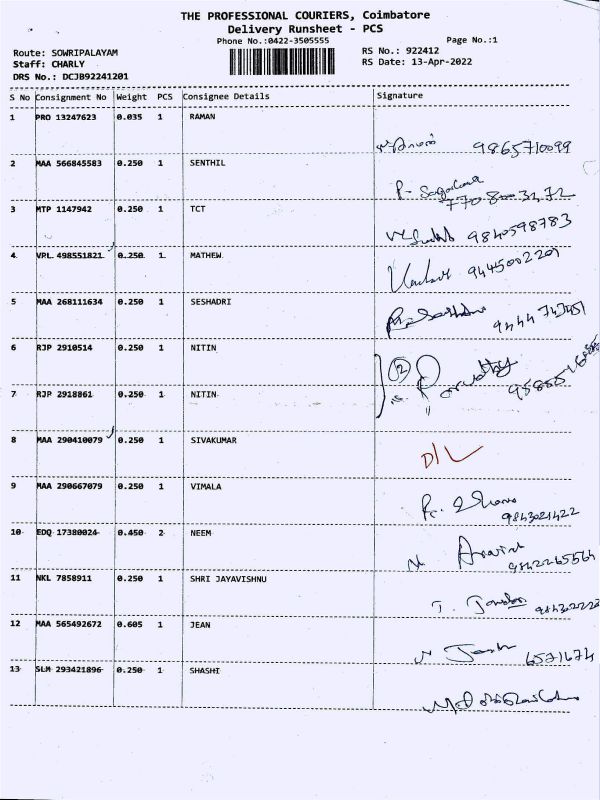 THE PROFESSIONAL COURIERS, Coimbatore
Delivery Runsheet - PCS
Phone No.:0422-3505555
Page No.:1
Route: SOWRIPALAYAM
RS No.: 922412
Staff: CHARLY
RS Date: 13-Apr-2022
DRS No.: DCJB92241201
S No Consignment No Weight PCS Consignee Details Signature
1 PRO 13247623 0.035 1 RAMAN
9865710099
2 MAA 566845583 0.250 1 SENTHIL
3 MTP 1147942 0.250 1 TCT
9840598783
4 VPL 498551821 0.250 1 MATHEW
9445002201
5 MAA 268111634 0.250 1 SESHADRI
6 RJP 2910514 0.250 1 NITIN
7 RJP 2918861 0.250 1 NITIN
8 MAA 290410079 0.250 1 SIVAKUMAR
D/L
9 MAA 290667079 0.250 1 VIMALA
9843021422
10 EDQ 17380024 0.450 2 NEEM
9842265564
11 NKL 7858911 0.250 1 SHRI JAYAVISHNU
12 MAA 565492672 0.605 1 JEAN
6571674
13 SLM 293421896 0.250 1 SHASHI